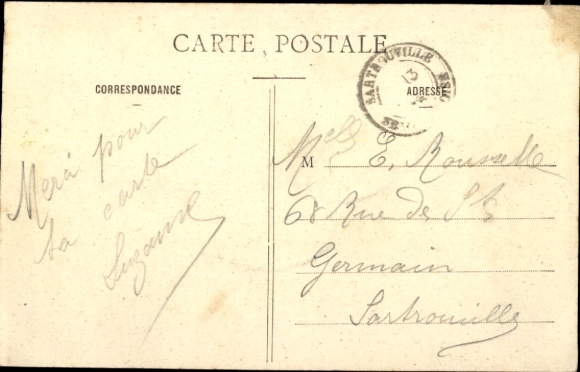 CARTE POSTALE
CORRESPONDANCE
ADRESSE
SARTROUVILLE
Merci pour
ta carte
Suzanne
Melle E. Rousselle
68 Rue de St
Germain
Sartrouville